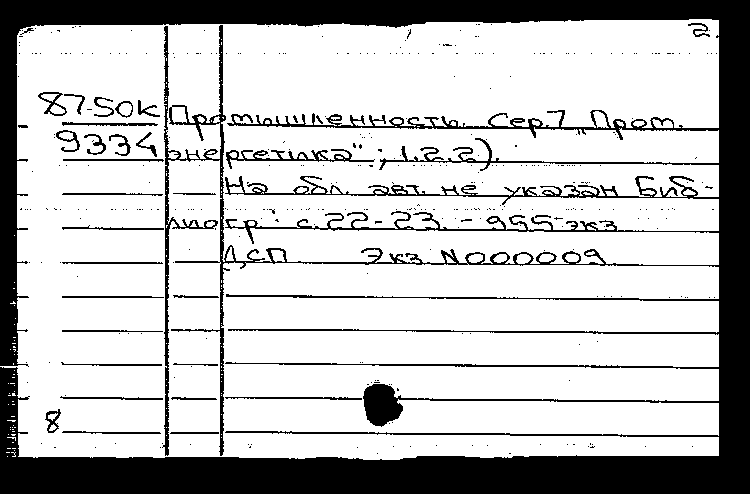 2.
87-50К Промышленность. Сер.7 „Пром.
9334 энергетика" ; 1.2.2).
На обл. авт. не указан Биб-
лиогр : с.22-23. - 955 экз
ДСП Экз N000009
8